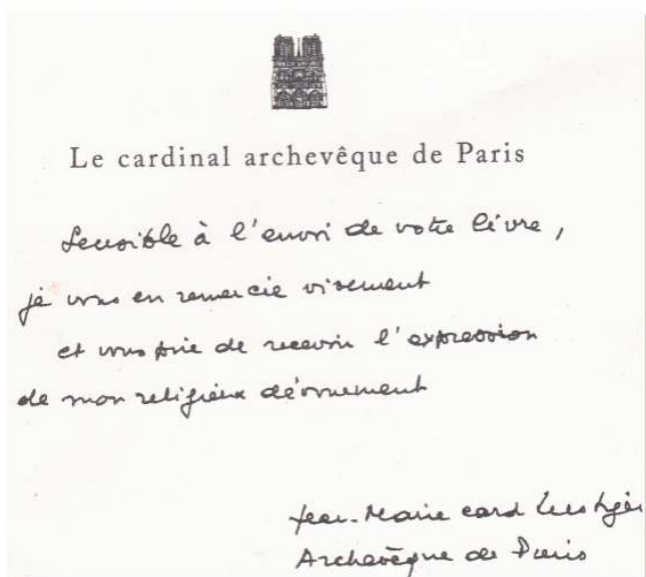 Le cardinal archevêque de Paris
Sensible à l'envoi de votre livre,
je vous en remercie vivement
et vous prie de recevoir l'expression
de mon religieux dévouement
Jean-Marie card Lustiger
Archevêque de Paris